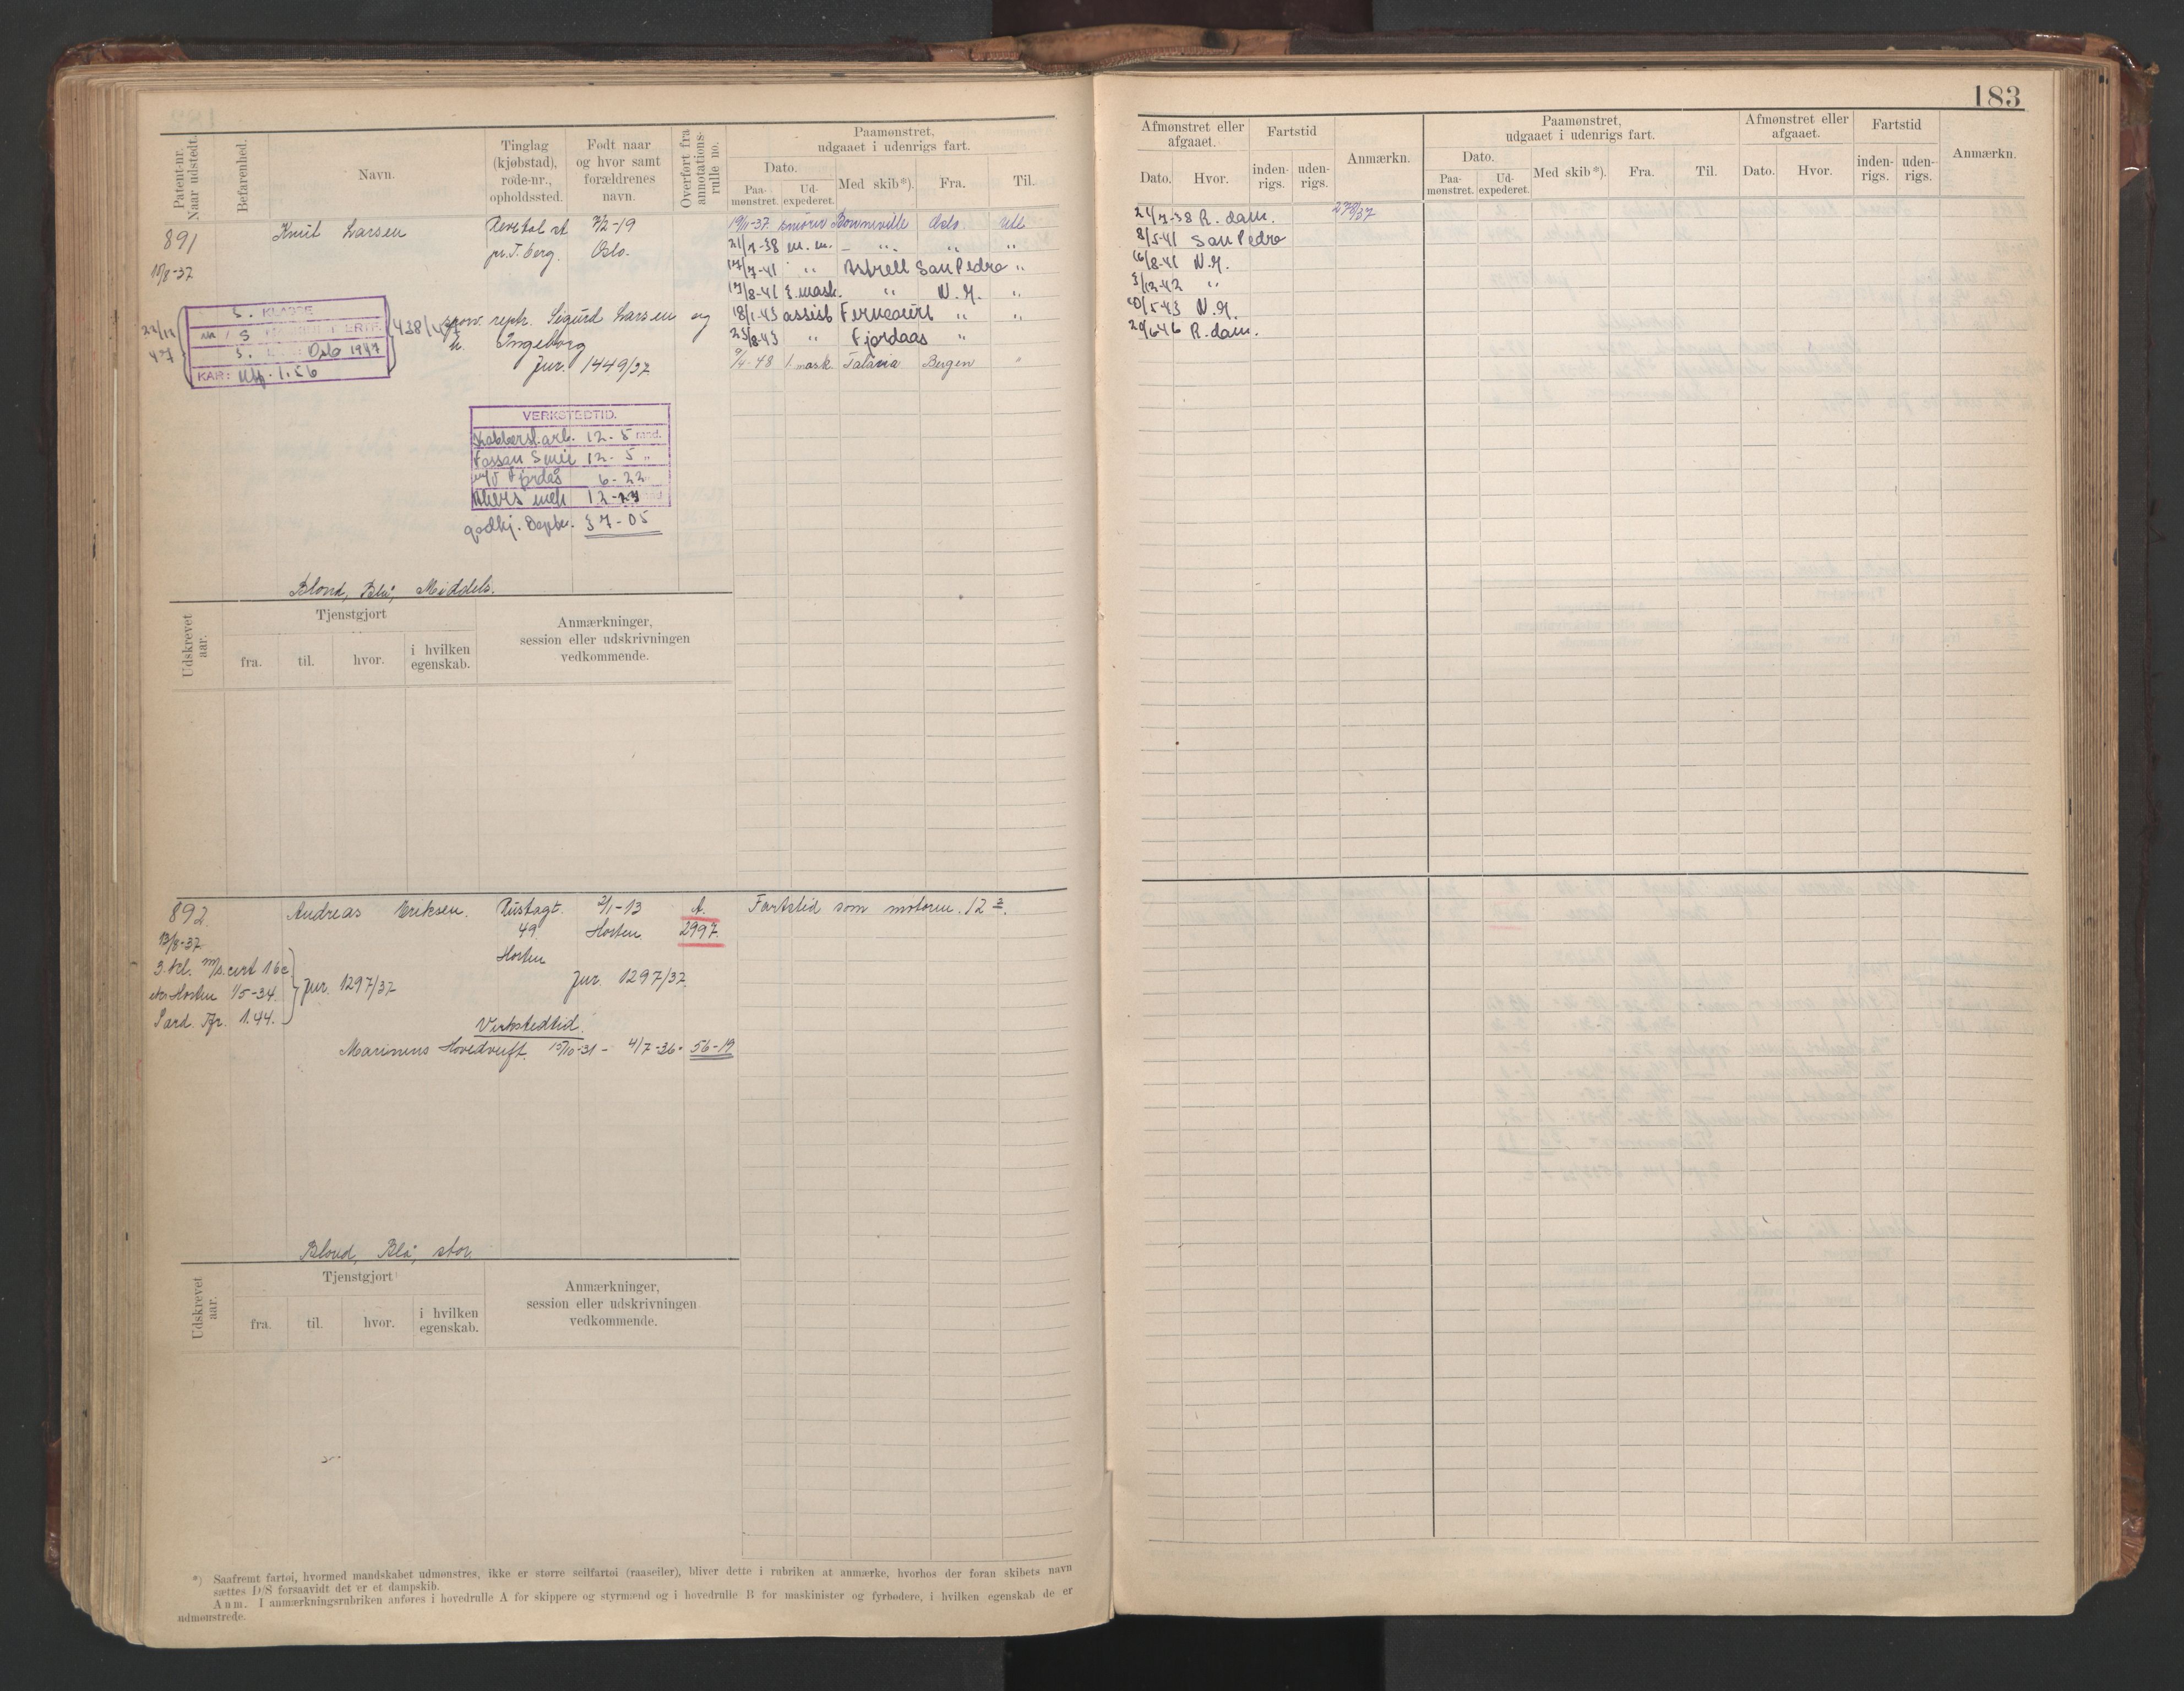 183
Patent-nr.
Naar udstedt.
Befarenhed.
Navn.
Tinglag
(kjøbstad),
rode-nr.,
opholdssted.
Født naar
og hvor samt
forældrenes
navn.
Overført fra
annotations-
rulle no.
Paamønstret,
udgaaet i udenrigs fart.
Dato.
Paa-
mønstret.
Ud-
expederet.
Med skib*).
Fra.
Til.
891
Knut Larsen
Revetal st
7/2-19
pr. T.berg.
Oslo.
10/8-37
19/11-37 smører Bonneville Oslo Utl
21/7-38 m.m. — „ „ „
17/7-41 „ Astrell San Pedro „
17/8-41 3.mask. „ N.Y. „
18/1-43 assist Ferncourt „ „
23/8-43 „ Fjordaas „
9/4-48 1 mask. Talaria Bergen "
22/12
47
3. KLASSE
M/S
Oslo 1947
KAR: 1.56
repr. Sigurd Larsen og
h. Ingeborg
Jur. 1449/37
VERKSTEDTID.
Kobbersl.arb. 12-5 mnd.
12-5 „
m/T Fjordås 6-22
Akers mek 12-23
godkj. 37-05
Blond, Blå, Middels.
Udskrevet
aar.
Tjenstgjort
fra.
til.
hvor.
i hvilken
egenskab.
Anmærkninger,
session eller udskrivningen
vedkommende.
892
Andreas Eriksen.
Rustagt.
2/1-13
A.
Fartstid som motorm. 12
13/8-37
49
Horten
2997
3. kl. m/s. cert 16c
Horten
Horten 1/5-34.
Jur. 1297/37
Jur. 1297/37.
1.44.
Verkstedtid.
Marinens Hovedverft. 15/10-31 - 4/7-36 = 56-19
Blond, Blå, stor
Udskrevet
aar.
Tjenstgjort
fra.
til.
hvor.
i hvilken
egenskab.
Anmærkninger,
session eller udskrivningen
vedkommende.
*) Saafremt fartøi, hvormed mandskabet udmønstres, ikke er større seilfartøi (raaseiler), bliver dette i rubriken at anmærke, hvorhos der foran skibets navn
sættes D/S forsaavidt det er et dampskib.
Anm. I anmærkningsrubriken anføres i hovedrulle A for skippere og styrmænd og i hovedrulle B for maskinister og fyrbødere, i hvilken egenskab de er
udmønstrede.
Afmønstret eller
afgaaet.
Dato.
Hvor.
Fartstid
inden-
rigs.
uden-
rigs.
Anmærkn.
Paamønstret,
udgaaet i udenrigs fart.
Dato.
Paa-
mønstret.
Ud-
expederet.
Med skib*).
Fra.
Til.
Afmønstret eller
afgaaet.
Dato.
Hvor.
Fartstid
inden-
rigs.
uden-
rigs.
Anmærkn.
21/7-38 R.dam.
8/5-41 San Pedro
16/8-41 N.Y.
3/12-42 „
10/5-43 N.Y.
20/6 46 R.dam.